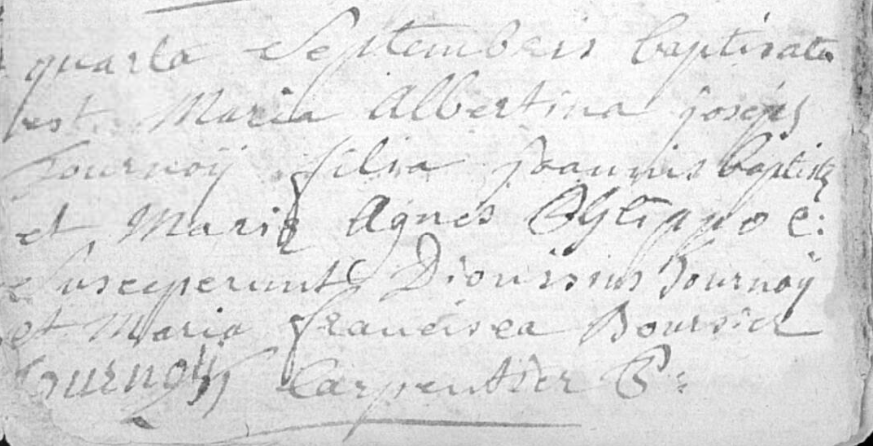 quarta Septembris baptisata
est Maria Albertina joseph
Tournoÿ filia Joannis baptistæ
et Mariæ Agnes
Susceperunt Dionisius Tournoÿ
et Maria francisca Boursier
Tournoÿ Carpentier P: